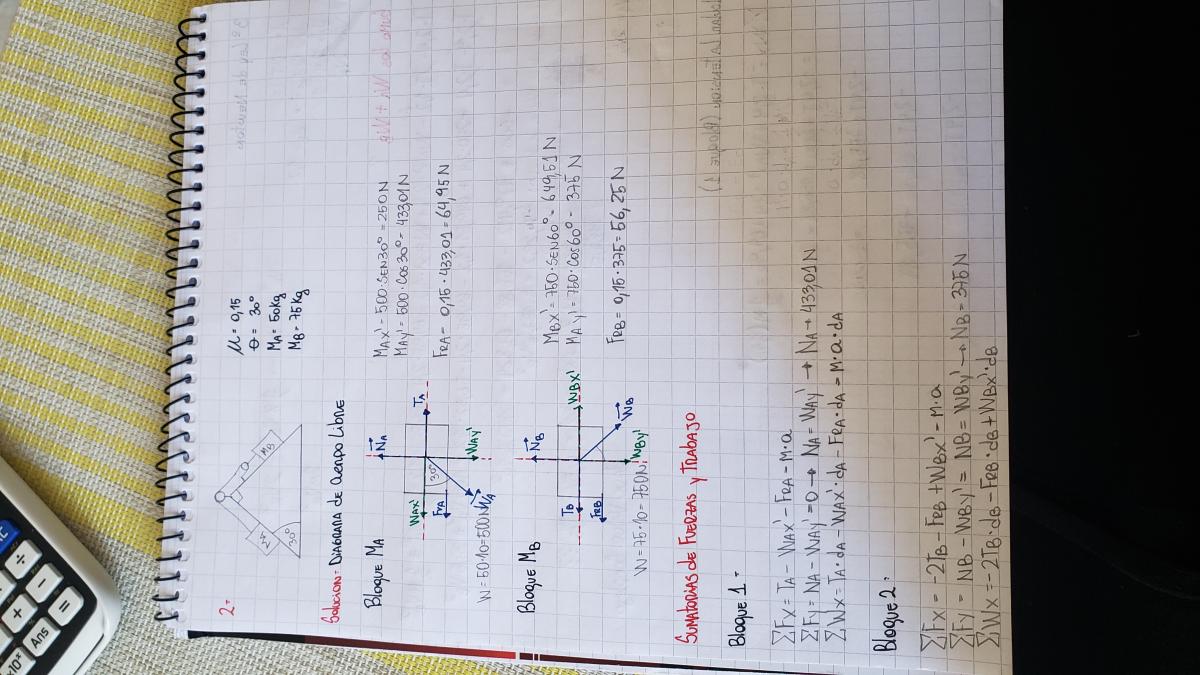 2-
μ = 0,15
θ = 30°
MA = 50kg
MB = 75kg
30°
MB
Solucion- DIAGRAMA de Cuerpo Libre
Bloque MA
NA
TA
WAX'
FrA
30°
WAY'
WA
W = 50·10 = 500N
MAX' = 500·SEN30° = 250N
MAY' = 500·Cos30° = 433,01N
FRA = 0,15·433,01 = 64,95N
Bloque MB
NB
TB
FRB
WBX'
WBY'
WB
W = 75·10 = 750N
MBX' = 750·SEN60° = 649,51N
MAY' = 750·Cos60° = 375N
FRB = 0,15·375 = 56,25N
SUMATORIAS de FUERZAS y TRABAJO
Bloque 1-
∑Fx = TA - WAX' - FRA = M·a
∑Fy = NA - WAY' = 0 → NA = WAY' → NA = 433,01N
∑Wx = TA·dA - WAX'·dA - FRA·dA = M·a·dA
Bloque 2-
∑Fx = -2TB - FRB + WBX' = M·a
∑Fy = NB - WBY' = NB = WBY' → NB = 375N
∑Wx = -2TB·dB - FRB·dB + WBX'·dB
+
-
÷
=
Ans
×10ˣ